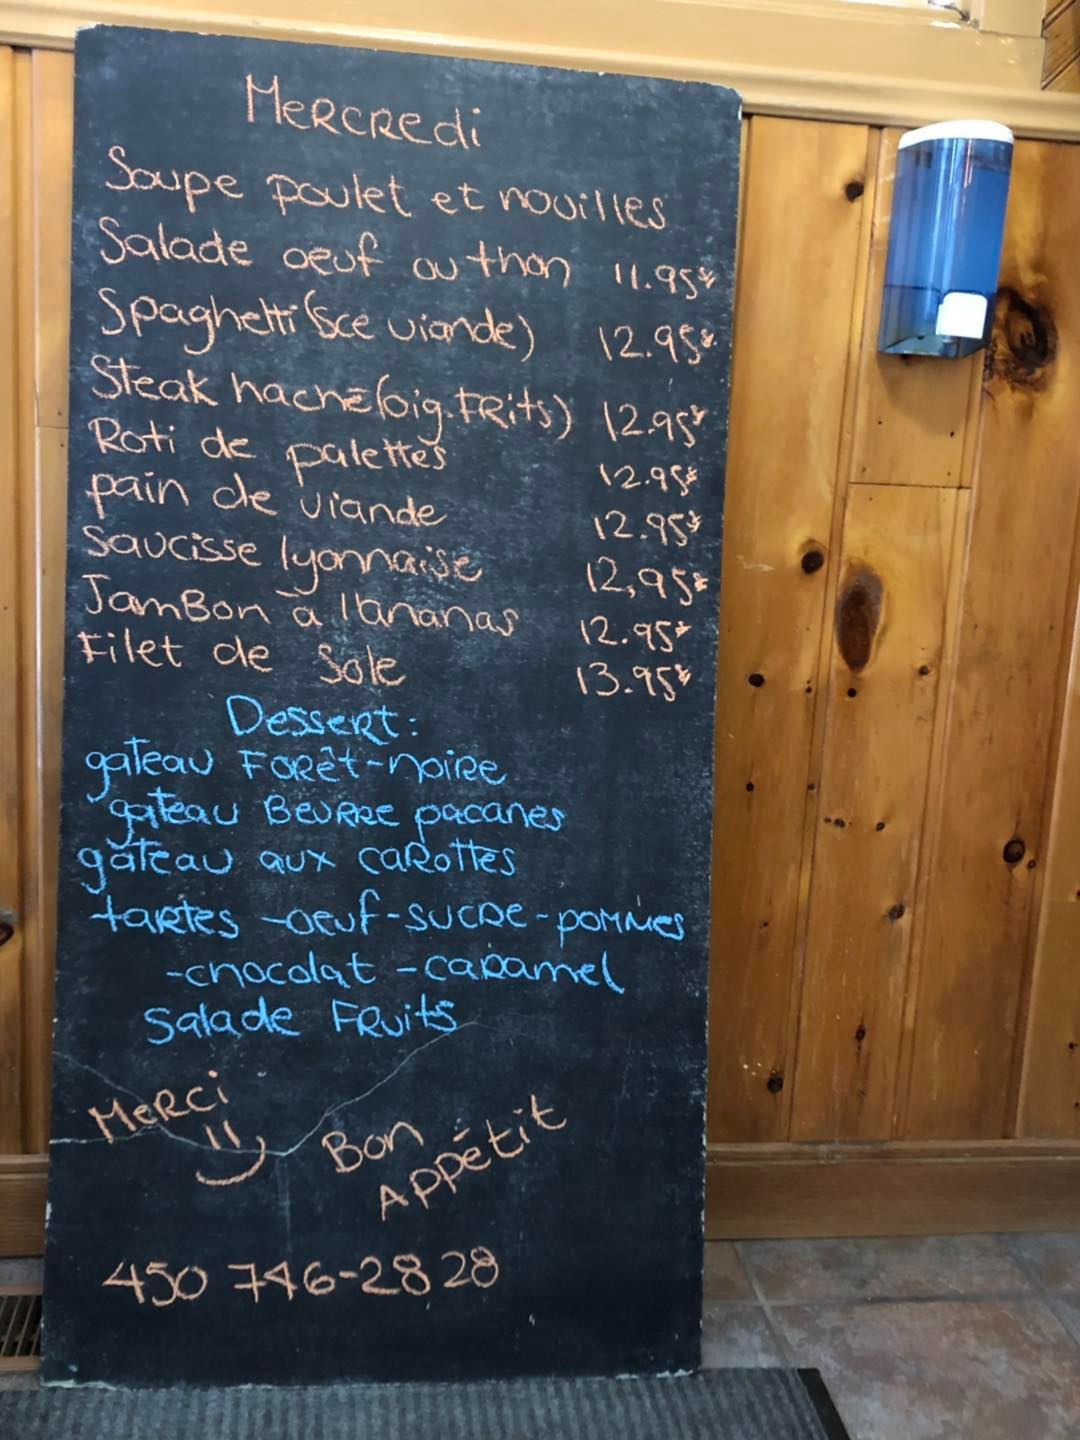 Mercredi
Soupe poulet et nouilles
Salade oeuf ou thon 11.95$
Spaghetti (sce viande) 12.95$
Steak haché (oig. frits) 12.95$
Roti de palettes 12.95$
pain de viande 12.95$
Saucisse lyonnaise 12,95$
Jambon à l'ananas 12.95$
Filet de Sole 13.95$
Dessert:
gateau Forêt-noire
gateau Beurre pacanes
gâteau aux carottes
tartes -oeuf-sucre-pommes
-chocolat -caramel
Salade Fruits
Merci
Bon
Appétit
450 746-2828